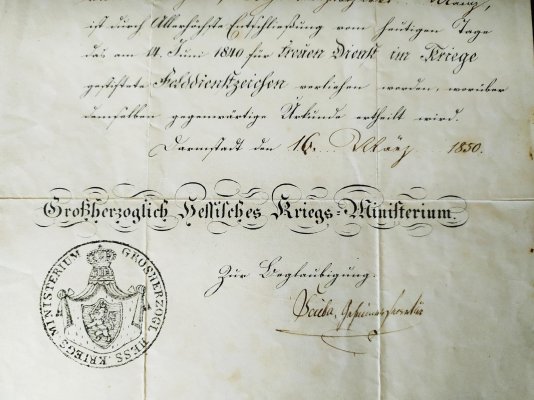 März,
ist durch Allerhöchste Entschließung vom heutigen Tage
das am 14. Juni 1840 für Treuen Dienst im Kriege
gestiftete Felddienstzeichen verliehen worden, worüber
demselben gegenwärtige Urkunde ertheilt wird.
Darmstadt den 16. März 1850.
Großherzoglich Hessisches Kriegs-Ministerium.
Zur Beglaubigung:
Geheimersecretär
GROSHERZOGL. HESS. KRIEGS MINISTERIUM